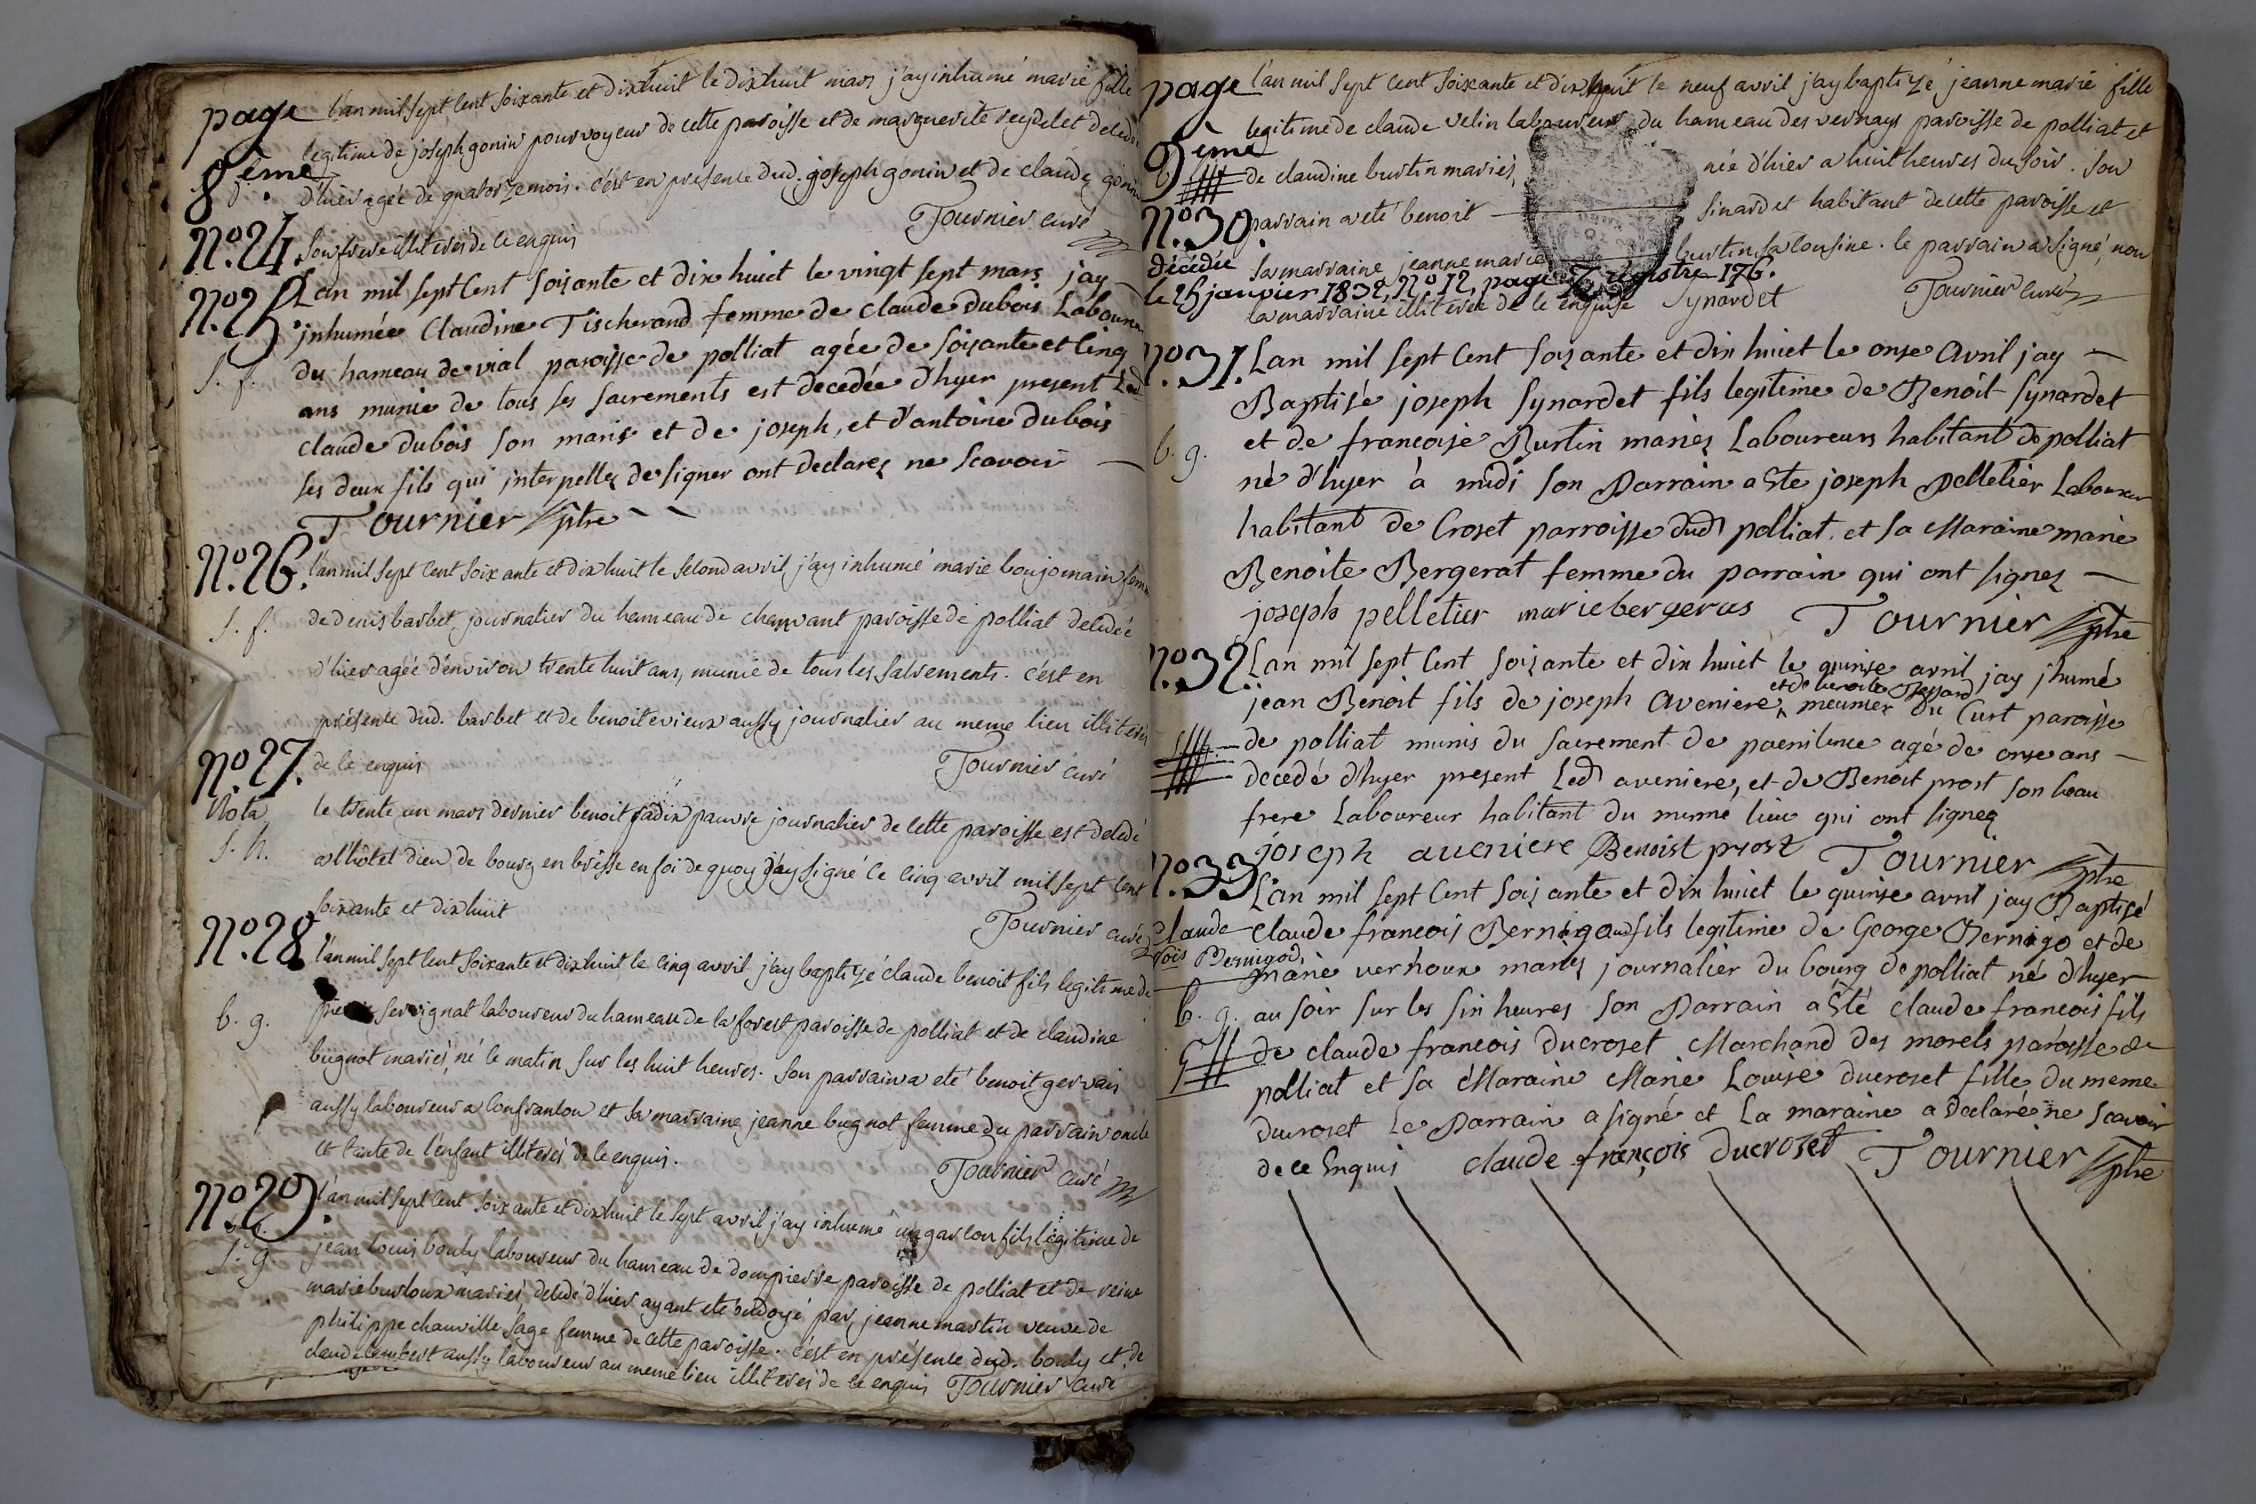 page
8ème
l'an mil sept cent soixante et dixhuit le dixhuit mars j'ay inhumé marie fille
legitime de joseph gonin pourvoyeur de cette paroisse et de marguerite reydelet decedé
d'hier agée de quatorze mois. c'est en presence dud. joseph gonin et de claude gonin
No. 24. son frere illiterés de ce enquis
Tournier curé
No. 25. Lan mil sept Cent soixante et dix huict le vingt sept mars jay
inhumée Claudine Tischerand femme de claude dubois Laboureur
s. f. du hameau de vial paroisse de polliat agée de soixante et Cinq
ans munie de tous ses sacrements est decedée d'hyer present Led
claude dubois son maris et de joseph, et d'antoine dubois
ses deux fils qui interpellez de signer ont declarez ne scavoir
Tournier ptre
No. 26. l'an mil sept cent soixante et dixhuit le second avril j'ay inhumé marie boujomain femme
s. f. de denis barbet journalier du hameau de chamvant paroisse de polliat decedée
d'hier agée d'environ trente huit ans, munie de tous les sacrements. c'est en
présence dud. barbet et de benoit evieux aussy journalier au meme lieu illiterés
de ce enquis
Tournier curé
No. 27.
Nota le trente un mars dernier benoit radix pauvre journalier de cette paroisse est decedé
s. h. a l'hôtel dieu de bourg en bresse en foi de quoy j'ay signé ce cinq avril mil sept cent
soixante et dixhuit
Tournier curé
No. 28. l'an mil sept cent soixante et dixhuit le cinq avril j'ay baptizé claude benoit fils legitime de
b. g. servignat laboureur du hameau de la forest paroisse de polliat et de claudine
bugnot mariés, né le matin sur les huit heures. son parrain a eté benoit gervais
aussy laboureur a confrancon et sa marraine jeanne bugnot femme du parrain oncle
et tante de l'enfant illiterés de ce enquis.
Tournier curé
No. 29. l'an mil sept cent soixante et dixhuit le sept avril j'ay inhumé un garcon fils legitime de
s. g. jean louis bouly laboureur du hameau de dompierre paroisse de polliat et de reine
marie burtoux mariés, decedé d'hier ayant eté ondoyé par jeanne martin veuve de
philippe chanville sage femme de cette paroisse. c'est en présence dud. bouly et de
claude lambert aussy laboureur au meme lieu illiterés de ce enquis Tournier curé
page
9ème
l'an mil sept cent soixante et dixhuit le neuf avril j'ay baptizé jeanne marie fille
legitime de claude velin laboureur du hameau des vernays paroisse de polliat et
de claudine burtin mariés, née d'hier a huit heures du soir. son
No. 30 parrain a eté benoit sinardet habitant de cette paroisse et
sa marraine jeanne marie burtin sa cousine. le parrain a signé, non
décédée le 25 janvier 1832, No. 12, page 7, registre 176.
la marraine illiterée de ce enquise Synardet Tournier curé
No. 31. Lan mil sept Cent soixante et dix huict le onze avril jay
Baptisé joseph Synardet fils legitime de Benoit Synardet
b. g. et de francoise Burtin mariez Laboureurs habitant de polliat
né d'hyer à midi son Parrain a Ete joseph Pelletier Laboureur
habitant de Croset parroisse dud polliat. et sa Maraine marie
Benoite Bergerat femme du parrain qui ont signez
joseph pelletier marie bergeras Tournier ptre
No. 32. Lan mil sept Cent soixante et dix huict le quinze avril jay jhumé
et de benoite Tessard
jean Benoit fils de joseph Aveniere meunier du Curt paroisse
de polliat munis du sacrement de poenitence agé de onze ans
decedé d'hyer present Led aveniere, et de Benoit prost son beau
frere Laboureur habitant du mume lieu qui ont signez
joseph aueniere Benoist prost Tournier ptre
No. 33. Lan mil sept Cent soixante et dix huict le quinze avril jay Baptisé
claude fois Bernigod.
claude francois Bernigaud fils legitime de George Bernigo et de
marie vernoux mariés journalier du bourg de polliat né d'hyer
b. g. au soir sur les six heures son Parrain a Eté claude francois fils
de claude francois Ducroset Marchand des morels paroisse de
polliat et sa Maraine Marie Louise ducroset fille du meme
ducroset Le Parrain a signé et La maraine a declaré ne scavoir
de ce Enquis claude françois Ducroset Tournier ptre